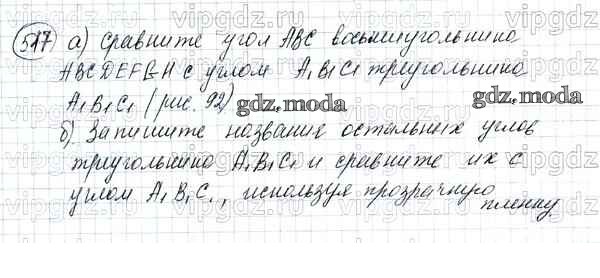 517 а) Сравните угол ABC восьмиугольника
ABCDEFGH с углом A₁B₁C₁ треугольника
A₁B₁C₁ (рис. 92)
gdz.moda
gdz.moda
б) Запишите названия остальных углов
треугольника A₁B₁C₁ и сравните их с
углом A₁B₁C₁, используя прозрачную
пленку